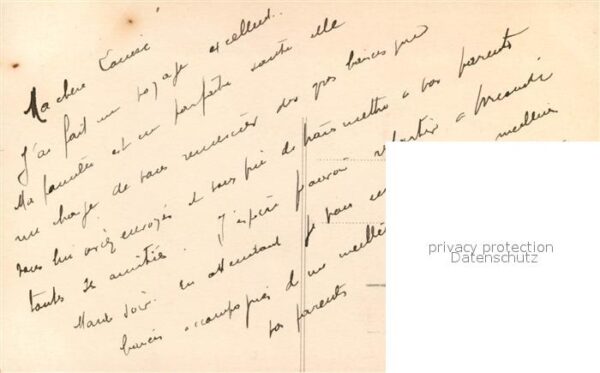 Ma chère Louise
J'ai fait un voyage excellent.
Ma famille est en parfaite santé elle
me charge de vous remercier des gros baisers que
vous lui avez envoyés et vous prie de transmettre à vos parents
toutes ses amitiés. J'espère pouvoir à
Mardi soir. En attendant je vous meilleurs
baisers accompagnés d'une
vos parents
privacy protection
Datenschutz